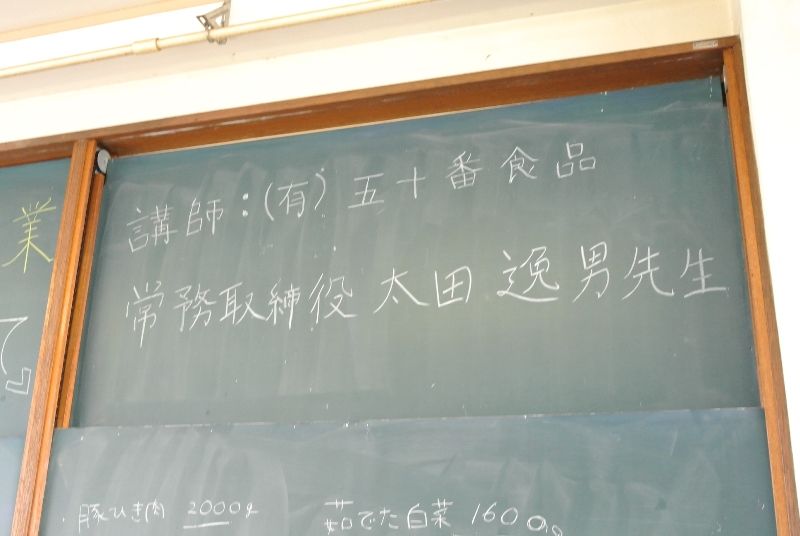 業
て』
講師:(有)五十番食品
常務取締役 太田 逸男先生
・豚ひき肉 2000g
茹でた白菜 1600g